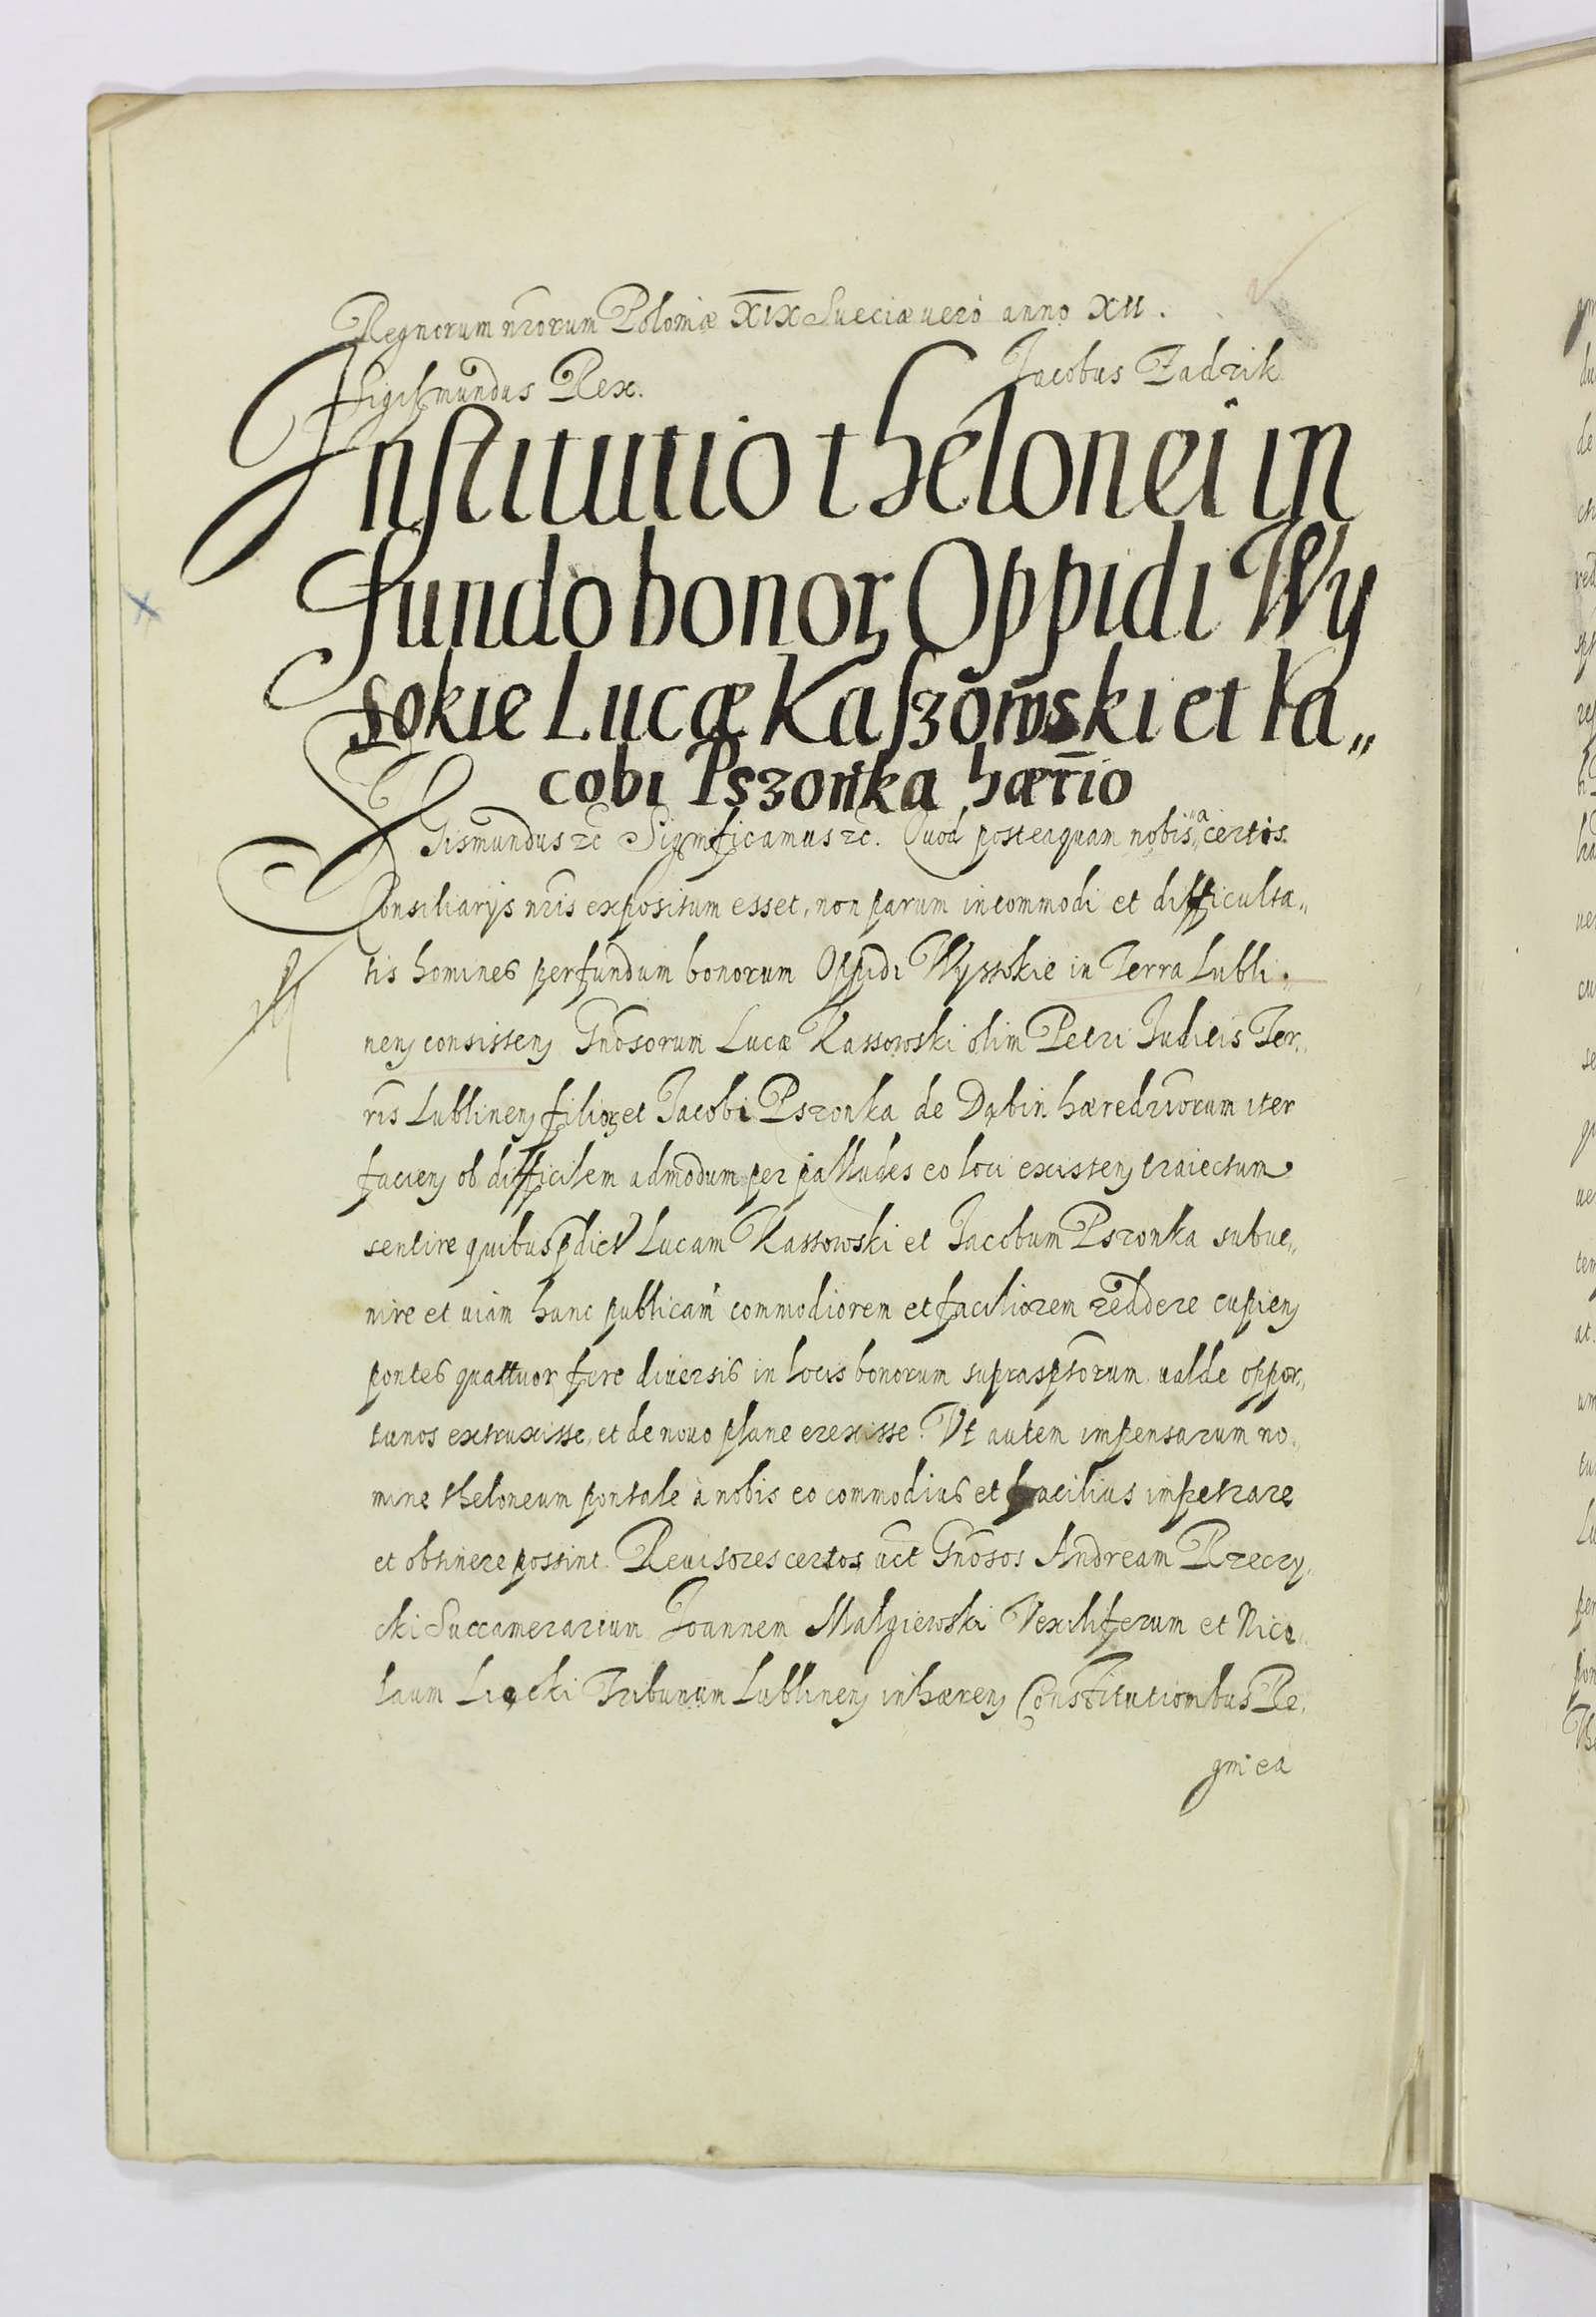 Regnorum nrorum Poloniæ XIX Sueciæ uero anno XII.
Sigismundus Rex. Jacobus Zadzik
Institutio thelonei in
fundo bonoꝝ Oppidi Wy
sokie Lucæ Kaszowski et Ia„
cobi Pszonka hærio
SIGismundus ꝛc Significamus ꝛc. Quod posteaquam nobis a certis
Consiliarijs nris expositum esset, non parum incommodi et difficulta„
tis homines per fundum bonorum Oppidi Wyssokie in Terra Lubli„
nen consisten Gnosorum Lucæ Kassowski olim Petri Judicis Ter„
ris Lublinen filioꝝ et Jacobi Pszonka de Dąbin hæredriorum iter
facien ob difficilem admodum per palludes eo loci existen traiectum
sentire quibus pdict Lucam Kassowski et Jacobum Pszonka subue„
nire et uiam hanc publicam commodiorem et faciliorem reddere cupien
pontes quattuor fere diuersis in locis bonorum suprasptorum ualde oppor„
tunos extruxisse, et de nouo plane erexisse. Vt autem impensarum no„
mine theloneum pontale a nobis eo commodius et facilius impetrare
et obtinere possint Reuisores certos uct Gnosos Andream Rzeczy„
cki Succamerarium Joannem Małgiewski Vexiliferum et Nico„
laum Liącki Tribunum Lublinen inhæren Constitutionibus Re„
gni ea